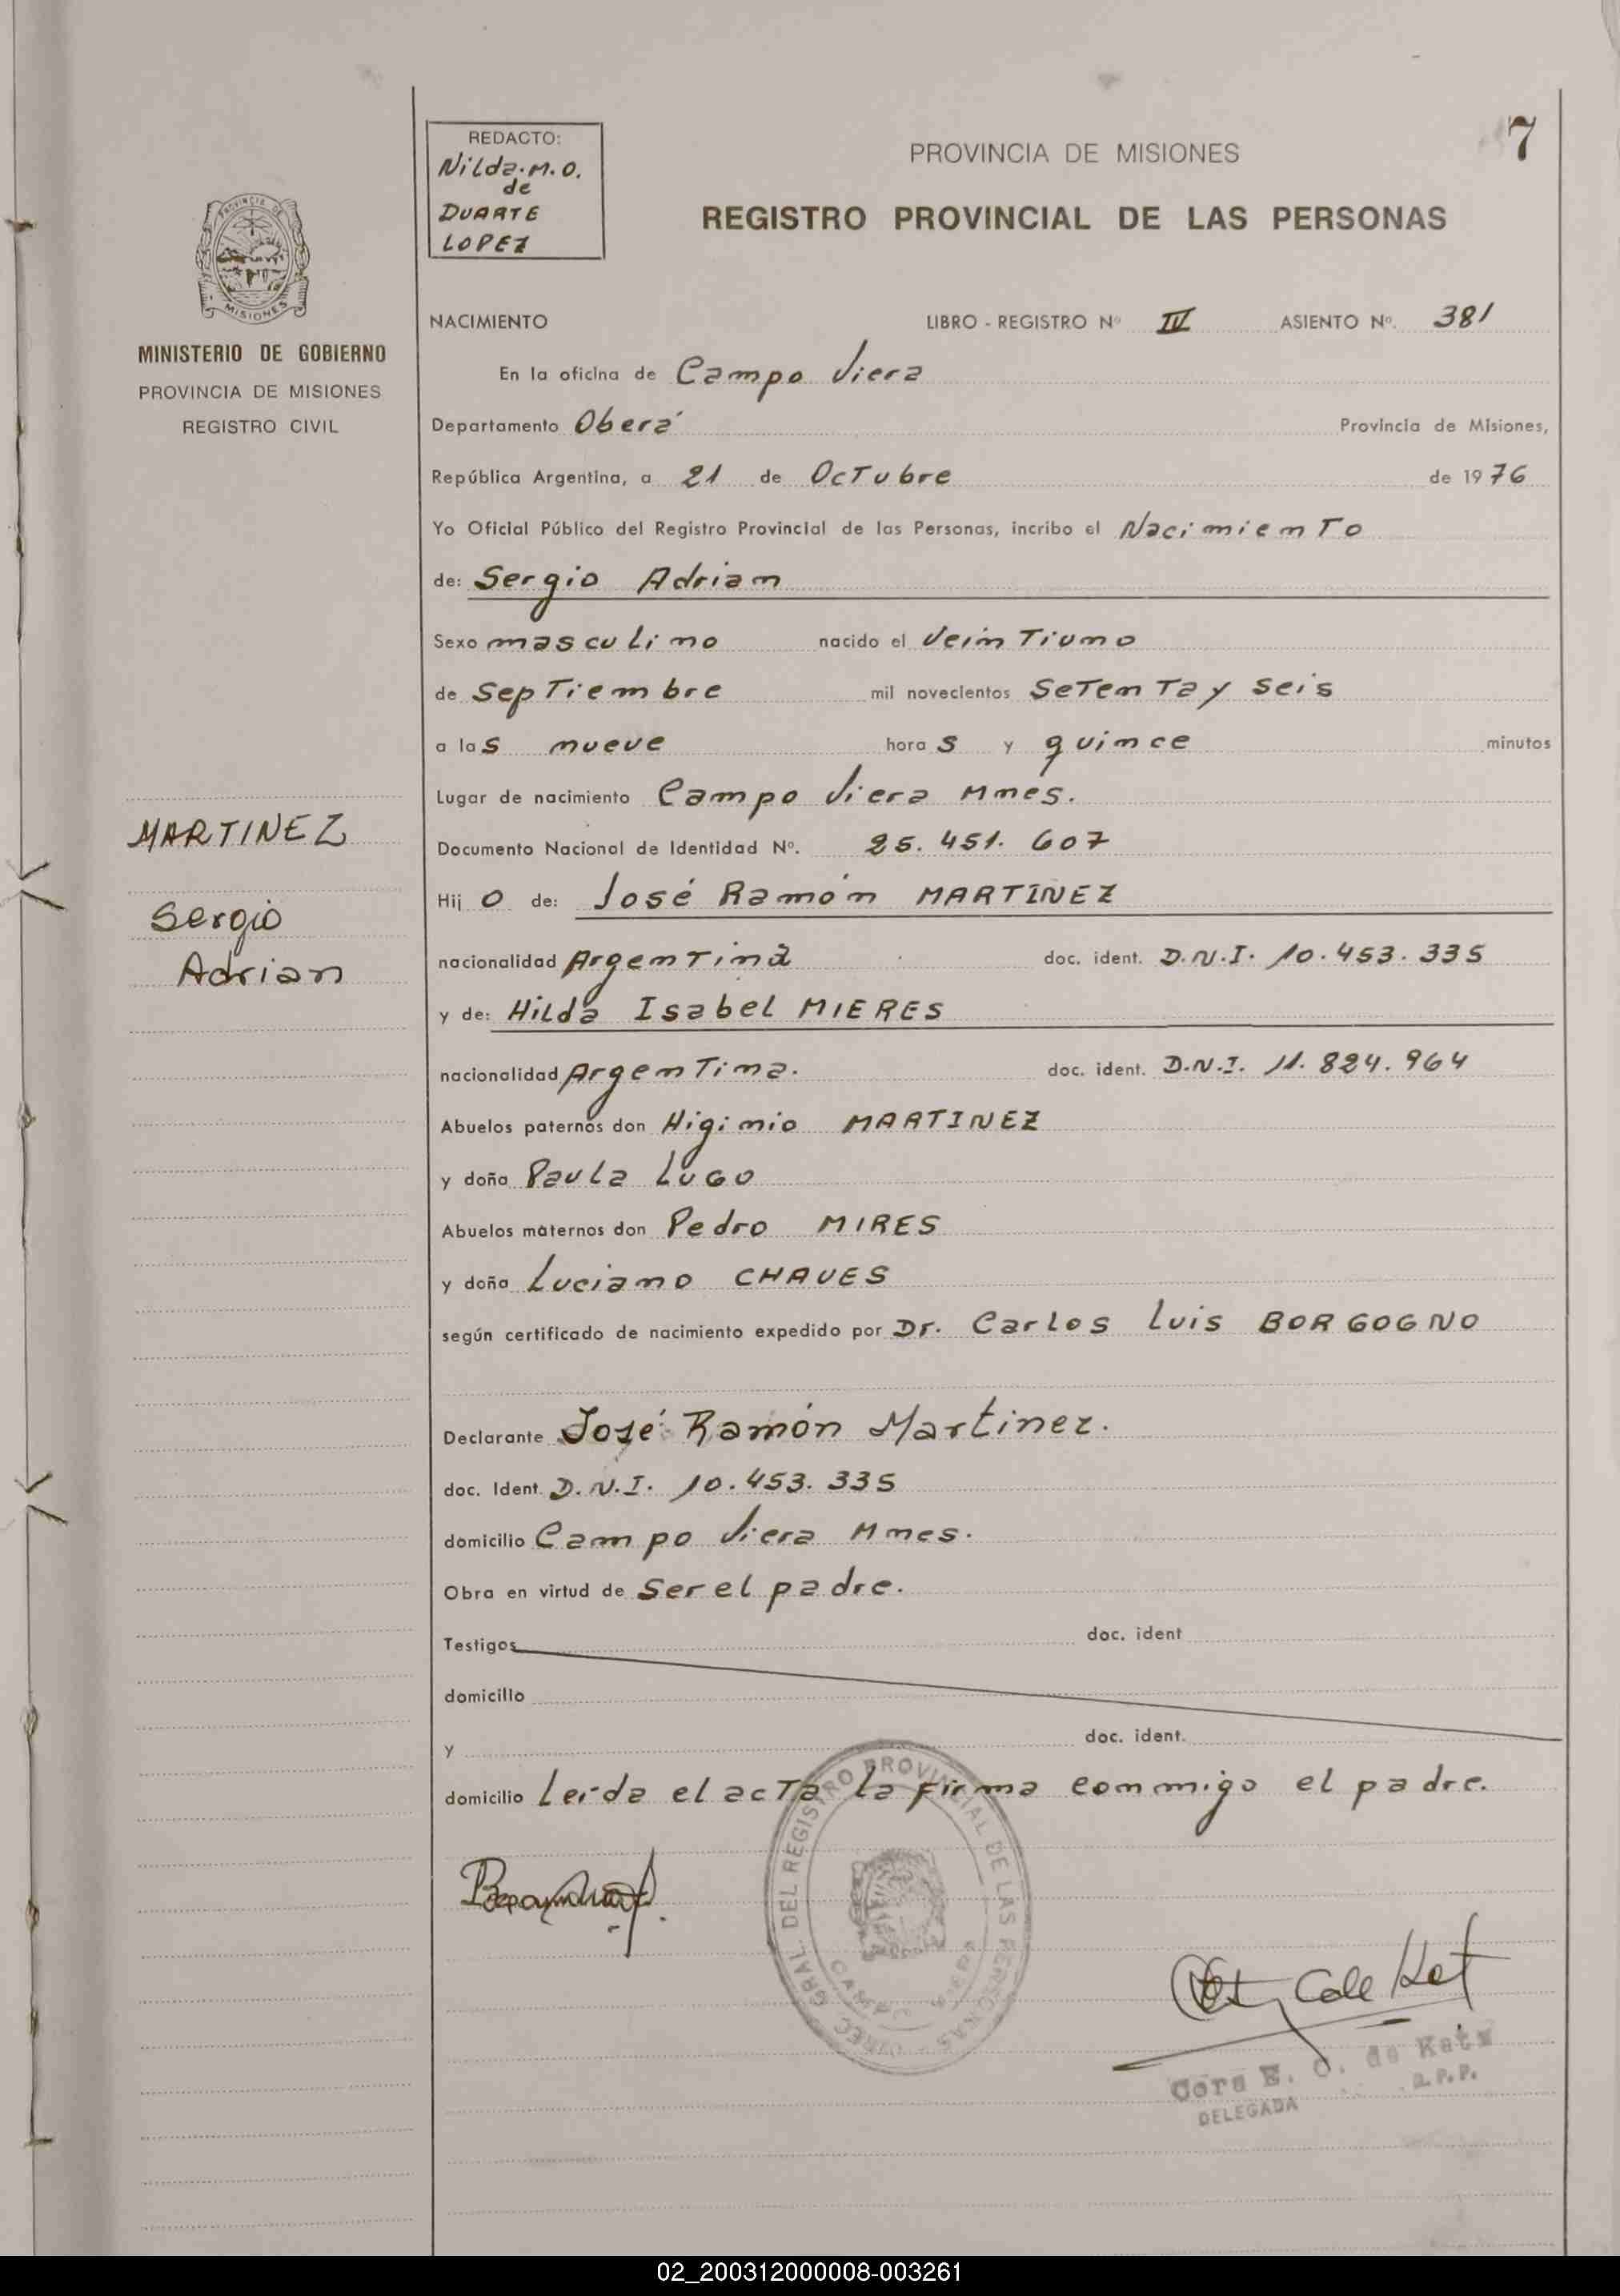 REDACTO:
Nilda. M. O.
de
DUARTE
LOPEZ
7
PROVINCIA DE MISIONES
REGISTRO PROVINCIAL DE LAS PERSONAS
PROVINCIA DE
MISIONES
MINISTERIO DE GOBIERNO
PROVINCIA DE MISIONES
REGISTRO CIVIL
MARTINEZ
Sergio
Adrian
NACIMIENTO LIBRO - REGISTRO Nº IV ASIENTO Nº. 381
En la oficina de Campo Viera
Departamento Oberá Provincia de Misiones,
República Argentina, a 21 de Octubre de 1976
Yo Oficial Público del Registro Provincial de las Personas, incribo el Nacimiento
de: Sergio Adrian
Sexo masculino nacido el veintiuno
de Septiembre mil novecientos Setenta y seis
a las nueve horas y quince minutos
Lugar de nacimiento Campo Viera Mnes.
Documento Nacional de Identidad Nº. 25.451.607
Hijo de: José Ramón MARTINEZ
nacionalidad Argentina doc. ident. D.N.I. 10.453.335
y de: Hilda Isabel MIERES
nacionalidad Argentina. doc. ident. D.N.I. 11.824.964
Abuelos paternos don Higinio MARTINEZ
y doña Paula LUGO
Abuelos maternos don Pedro MIRES
y doña Luciano CHAVES
según certificado de nacimiento expedido por Dr. Carlos Luis BORGOGNO
Declarante José Ramón Martinez.
doc. Ident. D.N.I. 10.453.335
domicilio Campo Viera Mnes.
Obra en virtud de Ser el padre.
Testigos doc. ident
domicilio
y doc. ident.
domicilio Leída el acta la firma conmigo el padre.
DIREC. GRAL. DEL REGISTRO PROVINCIAL DE LAS PERSONAS
CAMPO VIERA
Cora E. C. de Katz
DELEGADA R.P.P.
02_200312000008-003261